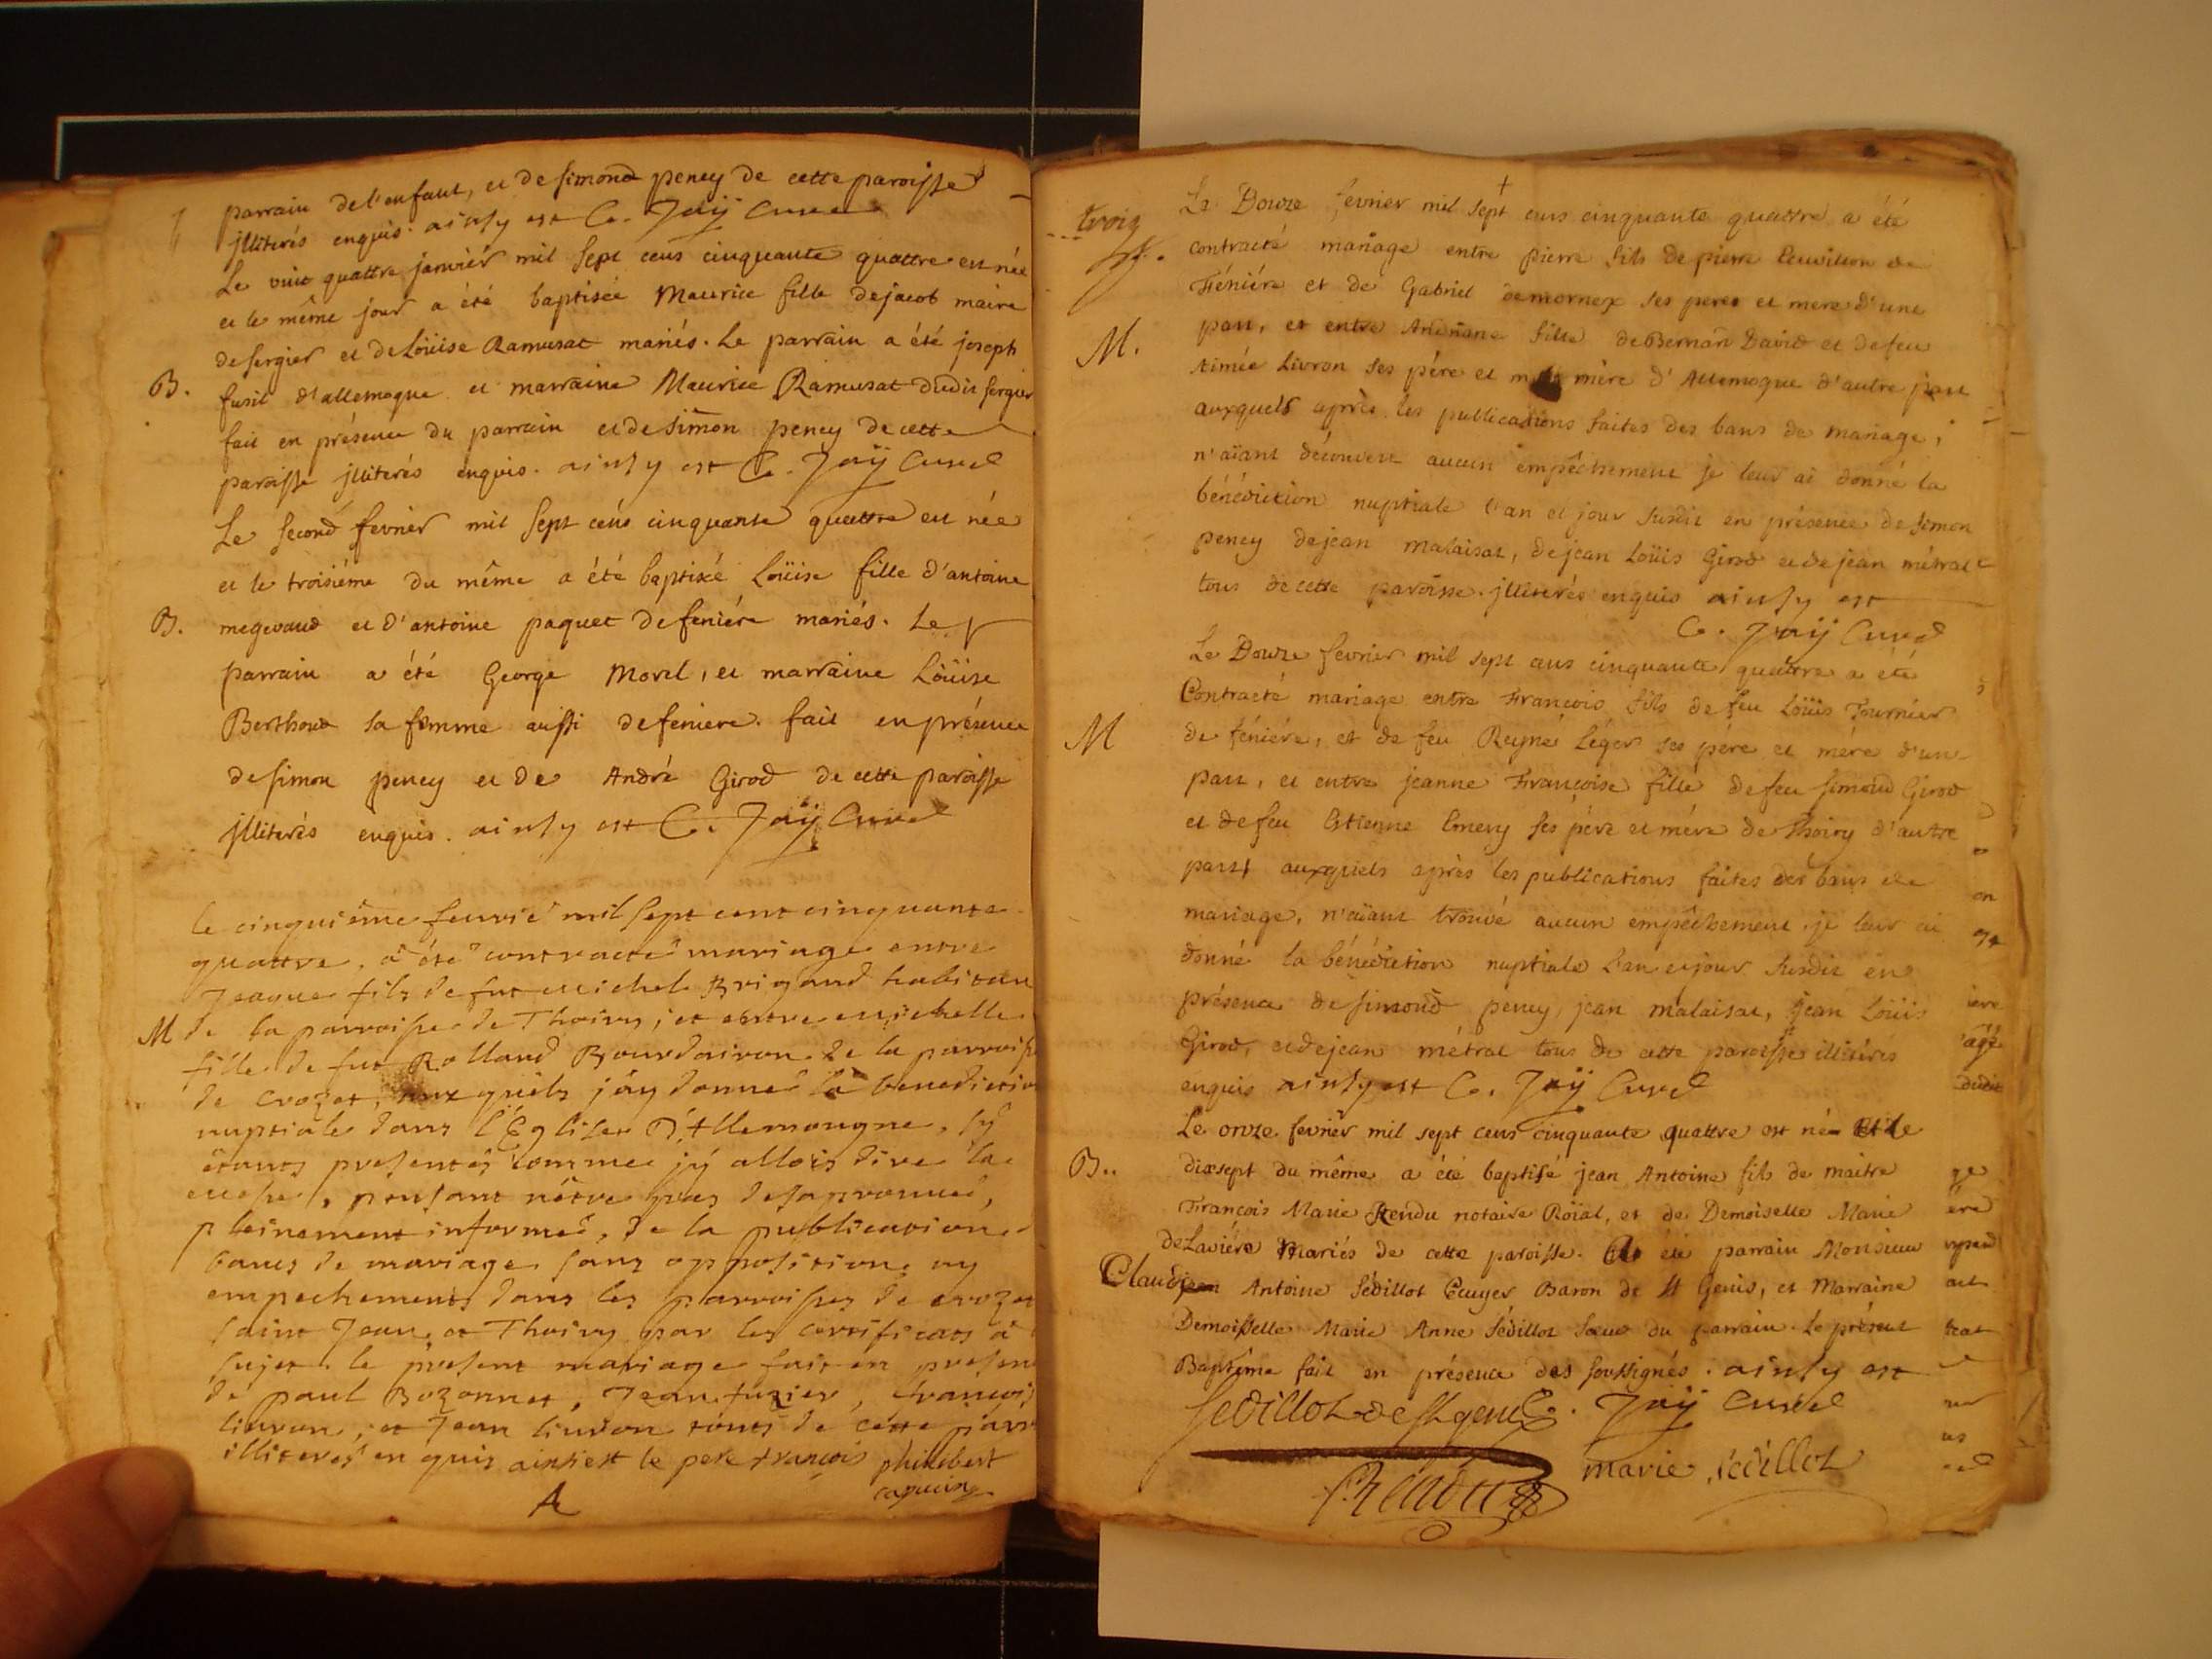 parrain de l'enfant, et de simond peney de cette paroisse
jlliterés enquis. ainsy est C. Jaÿ Curé
Le vint quattre janviér mil sept cens cinquante quattre est née
et le même jour a été baptisée Maurice fille de jacob maire
de sergier et de Loüise Ramusat mariés. Le parrain a été joseph
B. fusil d'allemogne et marraine Maurice Ramusat dudit sergier
fait en présence du parrain et de simon peney de cette
paroisse jlliterés enquis. ainsy est C. Jaÿ Curé
Le second fevrier mil sept cens cinquante quattre est née
et le troisiéme du même a été baptisé Loüise fille d'antoine
B. megevand et d'antoine paquet de feniére mariés. Le
parrain a été George Morel, et marraine Loüise
Berthoud sa femme aussi de feniere. fait en présence
de simon peney et de André Girod de cette paroisse
jlliterés enquis. ainsy est C. Jaÿ Curé
le cinquiême feuvié mil sept cent cinquante
quattre, a été contracté mariage entre
Jeaque fils de fut michel Brigand habitan
M de la parroisse de Thoiry, et entre michelle
fille de fut Rolland Bourdairon de la parrois
de crozet, aux quels jáy donné la benedictio
nuptiale dans l'Églises D'Allemougne, sÿ
étants presentés comme jÿ allois dire la
messe, pensant nétre pas desaprouué,
pleinement informé, de la publication
bancs de mariage sans opposition ny
empechements dans les parroisses de crozet
saint Jean et Thoiry par les certificats à
sujet. le present mariage fait en presen
de paul Bozonnet, Jean fuzier, françois
liuron, et Jean liuron touts de cette parr
illiteres en quis ainsi est le pere françois philibert
capucin
A
trois
Le Douze fevrier mil sept cens cinquante quattre a été
contracté mariage entre pierre fils de pierre Cuvillon de
Féniére et de Gabriel demornex ses peres et mere d'une
M. part, et entre Andriane fille de Bernar David et de feu
Aimée Livron ses pére et mére d'Allemogne d'autre part
auxquels après les publications faites des bans de mariage,
n'aïant découvert aucun empêchement je leur ai donné la
bénédiction nuptiale l'an et jour susdit en présence de simon
peney de jean malaisat, de jean Loüis Girod et de jean métral
tous de cette paroisse. jlliterés enquis ainsy est
C. Jaÿ Curé
Le Douze fevrier mil sept cens cinquante quattre a été
Contracté mariage entre François fils de feu Loüis Fournier
M de féniére, et de feu Reyné Léger ses pére et mére d'une
part, et entre jeanne Françoise fille de feu simond Girod
et de feu Etienne Emery ses pére et mére de Thoiry d'autre
part auxquels après les publications faites des bans de
mariage, n'aïant trouvé aucun empêchement je leur ai
donné la bénédiction nuptiale l'an et jour susdit en
présence de simond peney, jean malaisat, jean Loüis
Girod, et de jean métral tous de cette paroisse illitérés
enquis ainsy est C. Jaÿ Curé
Le onze fevrier mil sept cens cinquante quattre est né et le
B. dixsept du même a été baptisé jean Antoine fils de maitre
François Marie Rendu notaire Roïal, et de Demoiselle Marie
de Laviére Mariés de cette paroisse. A été parrain Monsieur
Claude Antoine Sédillot Ecuyer Baron de st Genis, et Marraine
Demoisselle Marie Anne Sédillot Sœur du parrain. Le présent
Baptême fait en présence des soussignés. ainsy est
Sedillot de st genis C. Jaÿ Curé
Rendu marie sedillot